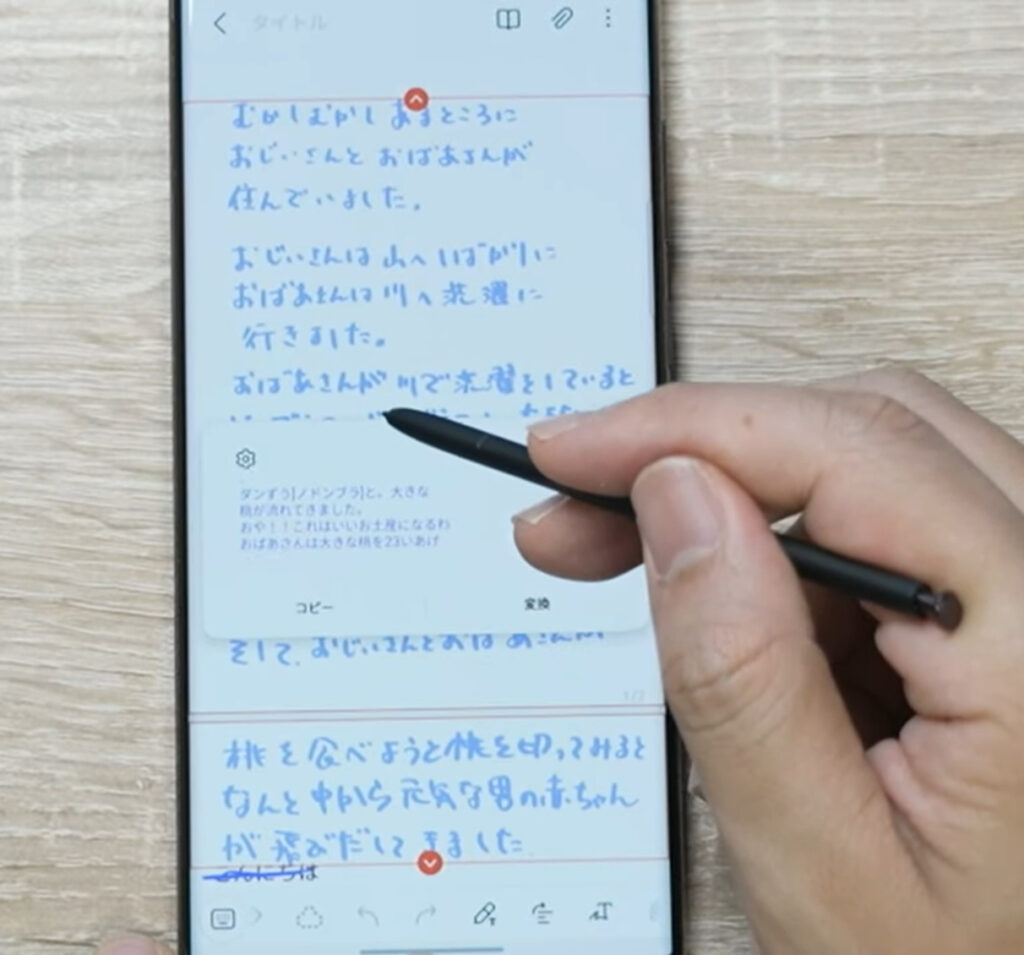 タイトル
むかしむかし あるところに
おじいさんと おばあさんが
住んでいました。
おじいさんは 山へ しばかりに
おばあさんは 川へ 洗濯に
行きました。
おばあさんが 川で 洗濯をしていると
ダンずう]ノドンブラ]と。大きな
桃が流れてきました。
おや！！これはいいお土産になるわ
おばあさんは大きな桃を23いあげ
コピー 変換
そして、おじいさんとおばあさんが
1/2
桃を食べようと桃を切ってみると
なんと中から元気な男の赤ちゃん
が飛びだしてきました。
こんにちは